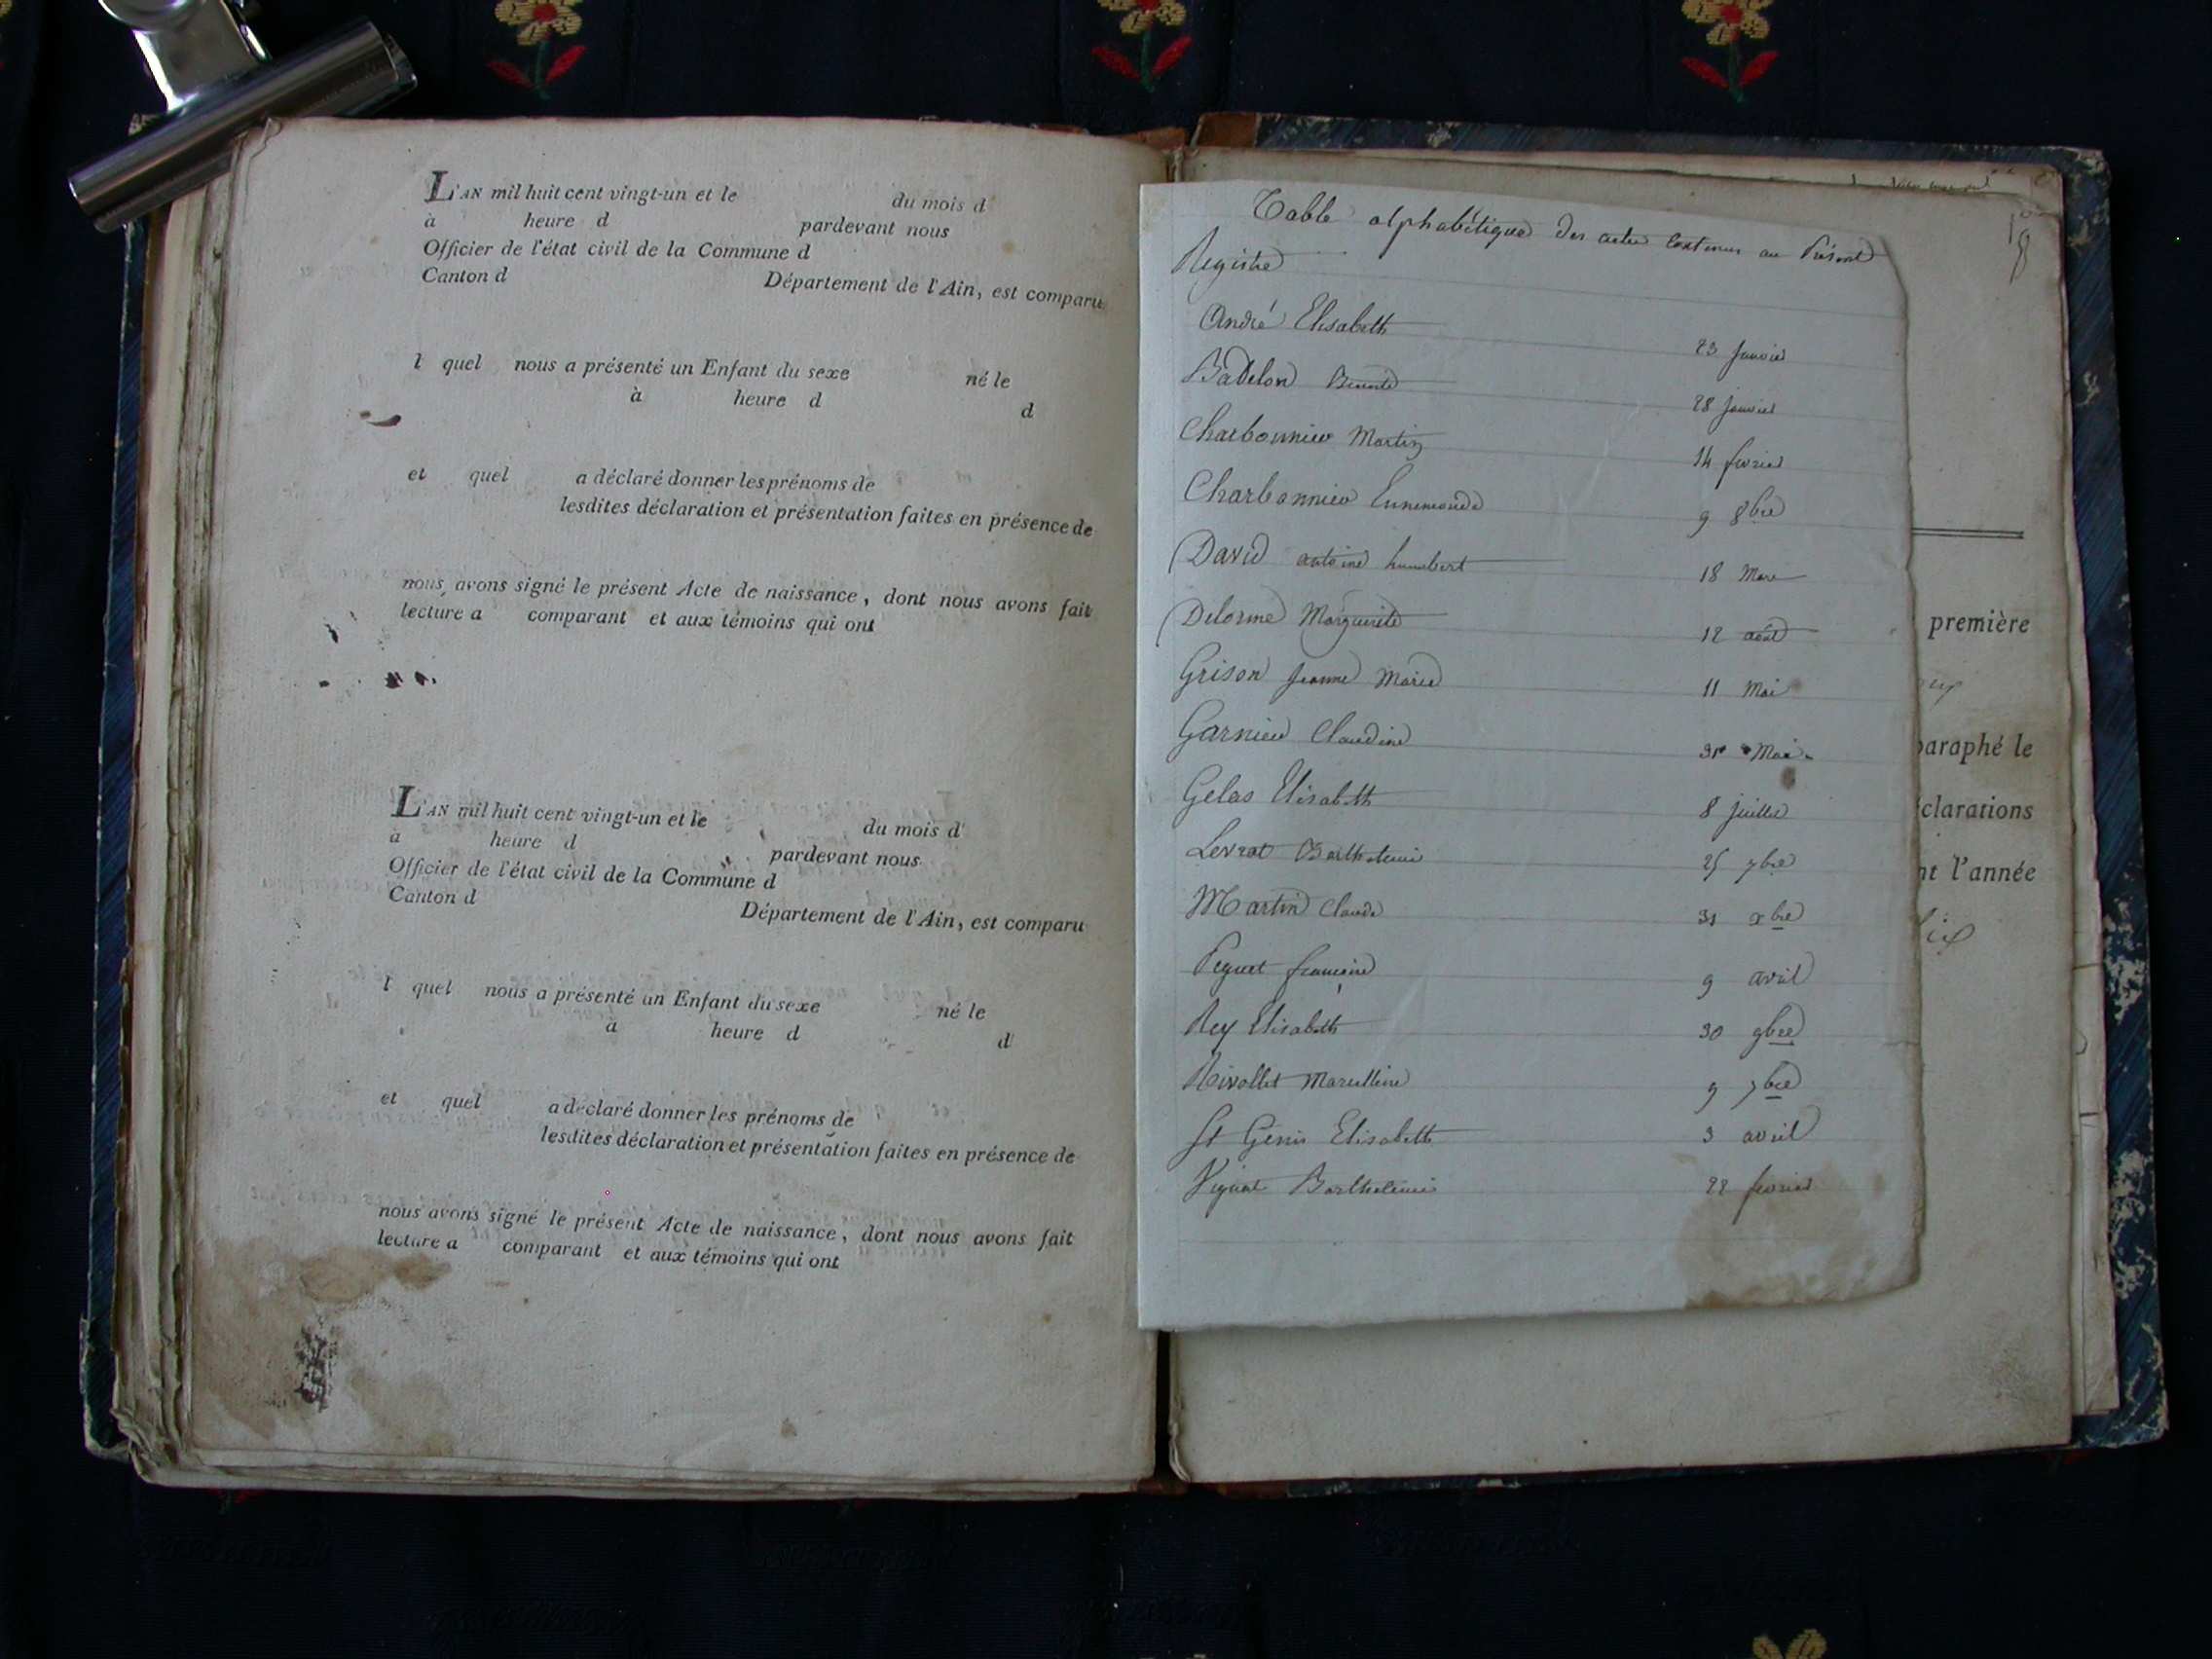 L'AN mil huit cent vingt-un et le du mois d
à heure d pardevant nous
Officier de l'état civil de la Commune d
Canton d Département de l'Ain, est comparu
l quel nous a présenté un Enfant du sexe né le
à heure d d
et quel a déclaré donner les prénoms de
lesdites déclaration et présentation faites en présence de
nous avons signé le présent Acte de naissance, dont nous avons fait
lecture a comparant et aux témoins qui ont
L'AN mil huit cent vingt-un et le du mois d
à heure d pardevant nous
Officier de l'état civil de la Commune d
Canton d Département de l'Ain, est comparu
l quel nous a présenté un Enfant du sexe né le
à heure d d
et quel a déclaré donner les prénoms de
lesdites déclaration et présentation faites en présence de
nous avons signé le présent Acte de naissance, dont nous avons fait
lecture a comparant et aux témoins qui ont
Table alphabétique des actes contenus au Présent
Registre
André Elisabeth 23 Janvier
Badelon Benoite 28 Janvier
Charbonnier Martin 14 fevrier
Charbonnier Ennemonde 9 8bre
David antoine humbert 18 Mars
Delorme Marguerite 12 août
Grison Jeanne Marie 11 Mai
Garnier Claudine 31 Mai
Gelas Elisabeth 8 juillet
Levrat Barthelemi 25 7bre
Martin Claude 31 xbre
Peguet françoise 9 avril
Rey Elisabeth 30 9bre
Rivollet Marcelline 9 7bre
St Genis Elisabeth 3 avril
Vignat Barthelemi 22 fevrier
première
paraphé le
clarations
nt l'année